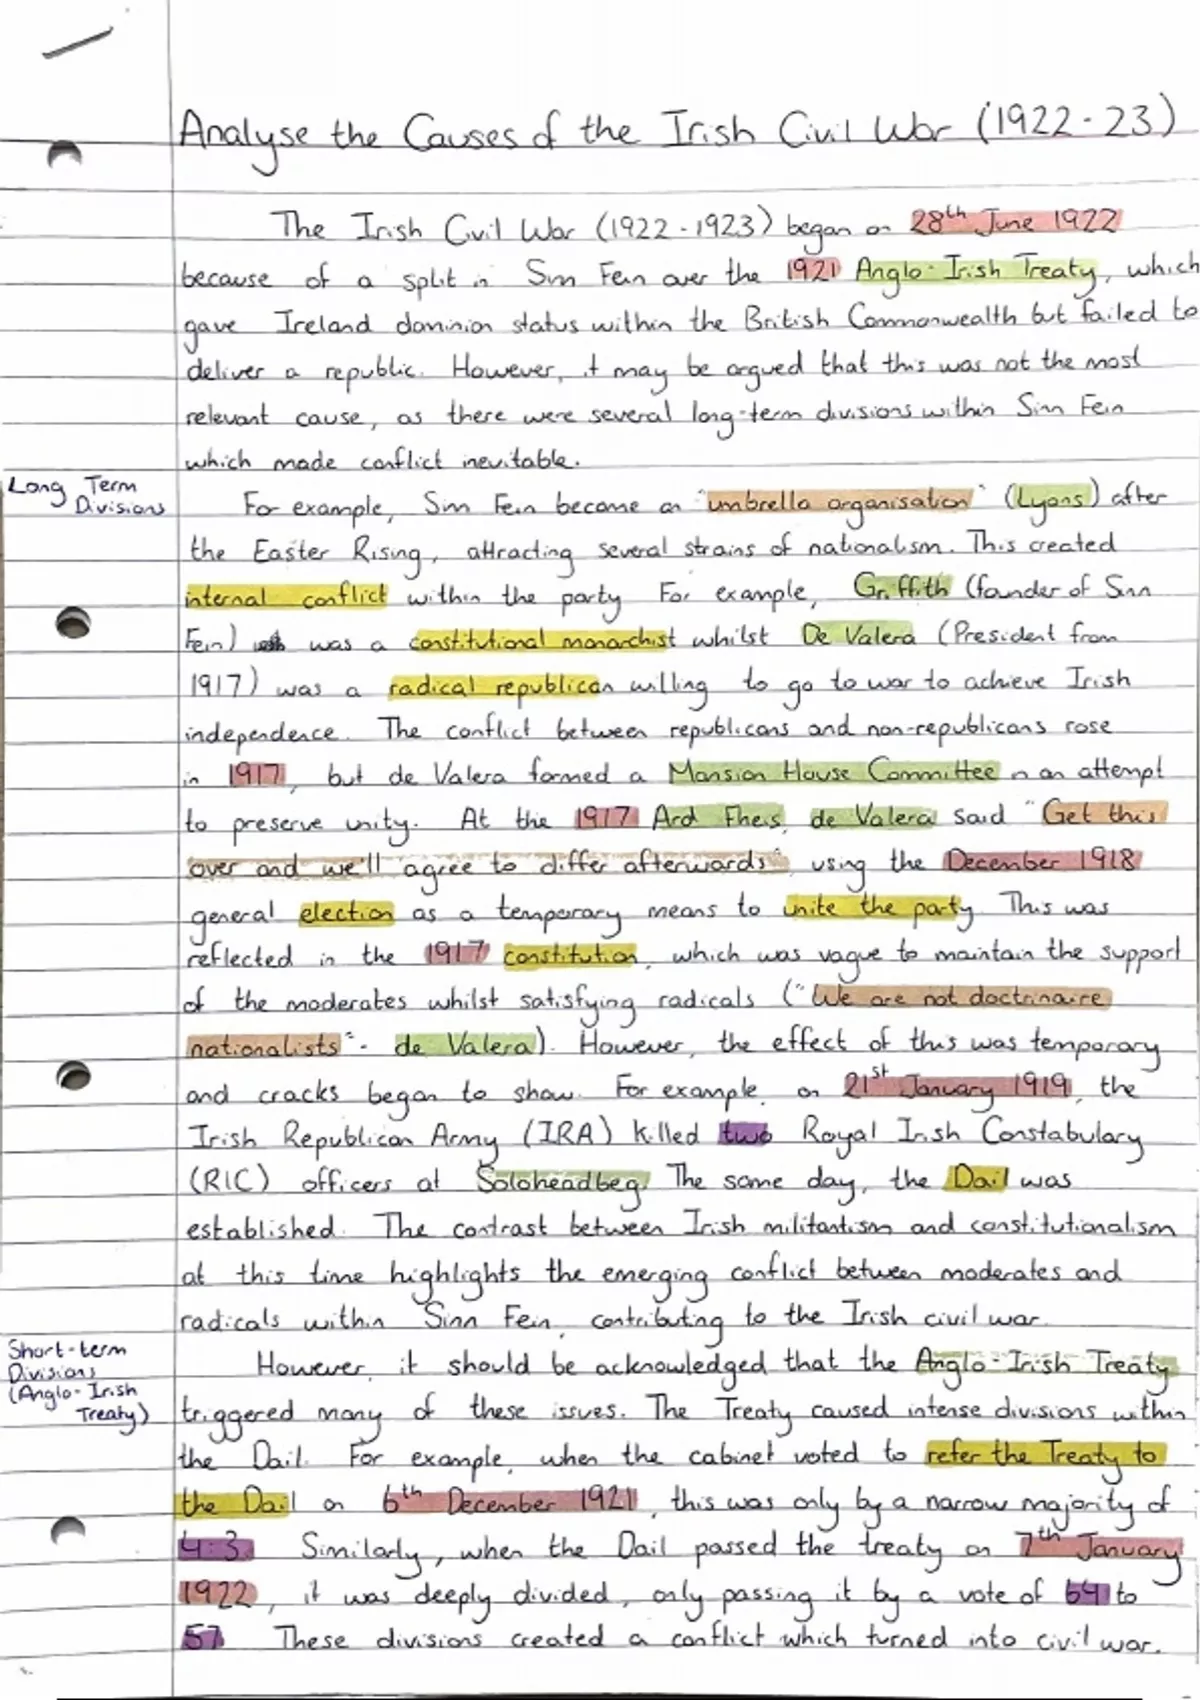 Analyse the Causes of the Irish Civil War (1922-23)
The Irish Civil War (1922-1923) began on 28th June 1922
because of a split in Sinn Fein over the 1921 Anglo-Irish Treaty, which
gave Ireland dominion status within the British Commonwealth but failed to
deliver a republic. However, it may be argued that this was not the most
relevant cause, as there were several long-term divisions within Sinn Fein
which made conflict inevitable.
Long Term
Divisions
For example, Sinn Fein became an "umbrella organisation" (Lyons) after
the Easter Rising, attracting several strains of nationalism. This created
internal conflict within the party. For example, Griffith (founder of Sinn
Fein) was a constitutional monarchist whilst De Valera (President from
1917) was a radical republican willing to go to war to achieve Irish
independence. The conflict between republicans and non-republicans rose
in 1917, but de Valera formed a Mansion House Committee in an attempt
to preserve unity. At the 1917 Ard Fheis, de Valera said "Get this
over and we'll agree to differ afterwards", using the December 1918
general election as a temporary means to unite the party. This was
reflected in the 1917 constitution, which was vague to maintain the support
of the moderates whilst satisfying radicals ("We are not doctrinaire
nationalists" - de Valera). However, the effect of this was temporary
and cracks began to show. For example, on 21st January 1919, the
Irish Republican Army (IRA) killed two Royal Irish Constabulary
(RIC) officers at Soloheadbeg. The same day, the Dail was
established. The contrast between Irish militantism and constitutionalism
at this time highlights the emerging conflict between moderates and
radicals within Sinn Fein, contributing to the Irish civil war.
Short-term
Divisions
(Anglo-Irish
Treaty)
However, it should be acknowledged that the Anglo-Irish Treaty
triggered many of these issues. The Treaty caused intense divisions within
the Dail. For example, when the cabinet voted to refer the Treaty to
the Dail on 6th December 1921, this was only by a narrow majority of
4:3. Similarly, when the Dail passed the treaty on 7th January
1922, it was deeply divided, only passing it by a vote of 64 to
57. These divisions created a conflict which turned into civil war.